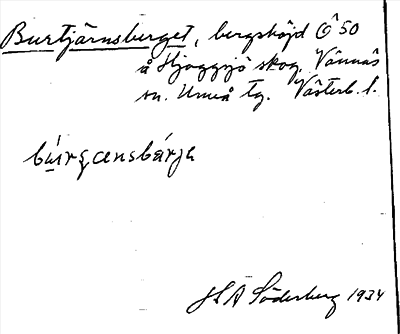 Burtjärnsberget, bergshöjd Ö 50
å Hjoggsjö skog, Vännäs
sn. Umeå tg. Västerb. l.
H S A Söderberg 1934